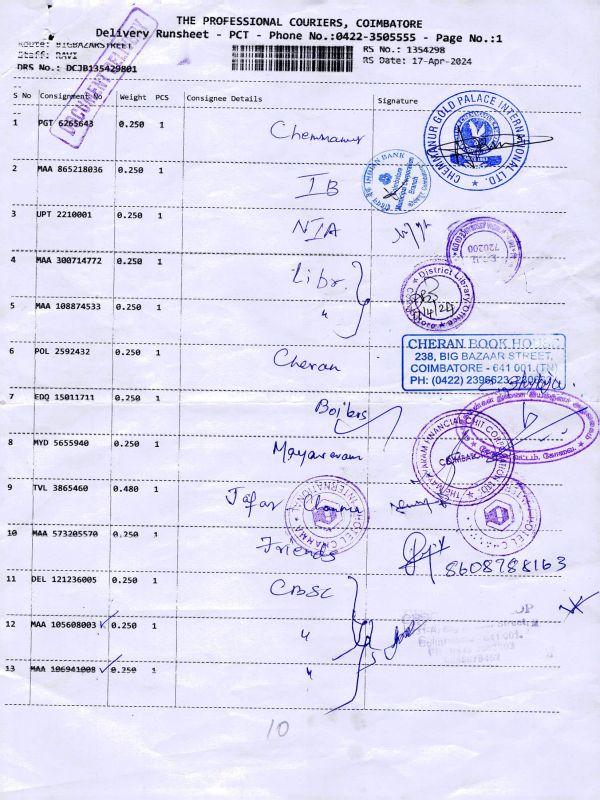 THE PROFESSIONAL COURIERS, COIMBATORE
Delivery Runsheet - PCT - Phone No.:0422-3505555 - Page No.:1
Route: BIGBAZARSTREET
Staff: RAVI
DRS No.: DCJB135429801
RS No.: 1354298
RS Date: 17-Apr-2024
S No Consignment No Weight PCS Consignee Details Signature
1 PGT 6265643 0.250 1 Chemmanur
CHEMMANUR GOLD PALACE INTERNATIONAL LTD.
2 MAA 865218036 0.250 1 IB
INDIAN BANK
Branch
3 UPT 2210001 0.250 1 NIA
720200
4 MAA 300714772 0.250 1 Libr.
District Library Office
5 MAA 108874533 0.250 1 "
6 POL 2592432 0.250 1 Cheran
CHERAN BOOK HOUSE
238, BIG BAZAAR STREET,
COIMBATORE - 641 001. (TN)
PH: (0422) 2396623
7 EDQ 15011711 0.250 1 Boilers
8 MYD 5655940 0.250 1 Mayavaram
MAYAVARAM FINANCIAL CHIT CORPORATION LTD.
COIMBATORE
9 TVL 3865460 0.480 1 Jafar Channma
10 MAA 573205570 0.250 1 Friends
8608788163
11 DEL 121236005 0.250 1 CBSC
12 MAA 105608003 0.250 1 "
13 MAA 106941008 0.250 1 "
10